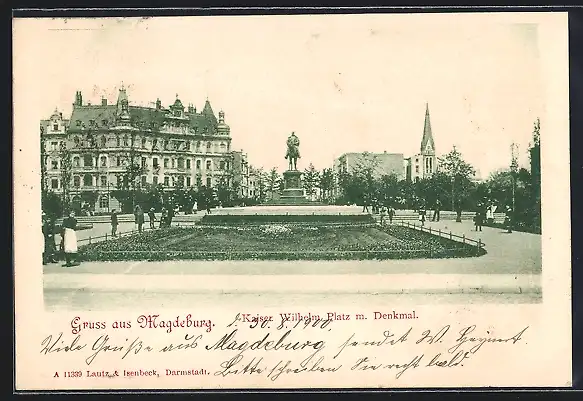 Gruss aus Magdeburg. Kaiser Wilhelm Platz m. Denkmal.
30.8.1900.
Viele Grüße aus Magdeburg sendet W. Heynert.
Bitte schreiben Sie recht bald.
A 11339 Lautz & Isenbeck, Darmstadt.